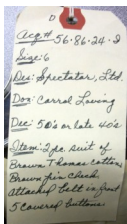 D
Acq# 56.86.24.2
Size: 6
Des: Spectator, Ltd.
Don: Carrol Loving
Dec: 50's or late 40's
Item: 2 pc. suit of
Brown Thomas cotton
Brown pin check
attached belt in front
5 covered buttons